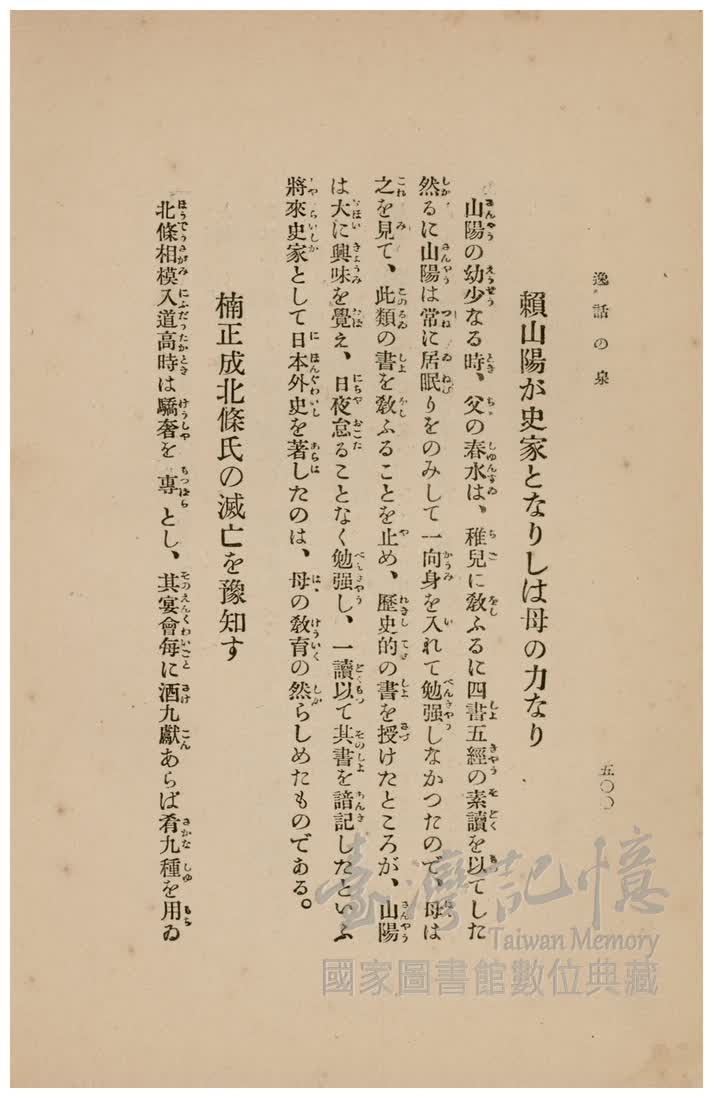 逸話の泉
五〇〇
賴山陽が史家となりしは母の力なり
山陽の幼少なる時、父の春水は、稚兒に敎ふるに四書五經の素讀を以てした
然るに山陽は常に居眠りをのみして一向身を入れて勉强しなかつたので、母は
之を見て、此類の書を敎ふることを止め、歷史的の書を授けたところが、山陽
は大に興味を覺え、日夜怠ることなく勉强し、一讀以て其書を諳記したといふ
將來史家として日本外史を著したのは、母の敎育の然らしめたものである。
楠正成北條氏の滅亡を豫知す
北條相模入道高時は驕奢を專とし、其宴會每に酒九獻あらば肴九種を用ゐ
臺灣記憶
Taiwan Memory
國家圖書館數位典藏